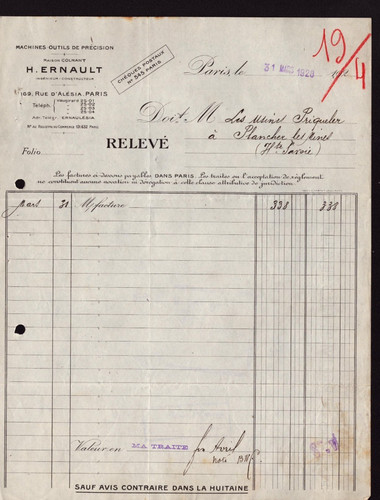 MACHINES-OUTILS DE PRÉCISION
MAISON COURANT
H. ERNAULT
INGÉNIEUR-CONSTRUCTEUR
169, RUE D'ALÉSIA, PARIS
Téléph.
Adr. Télég.: ERNAULÉSIA
CHÈQUES POSTAUX
N° 545 PARIS
19/4
Paris, le 31 MARS 1928
Doit M Les Usines
à Plancher les Mines
(Hte Savoie)
RELEVÉ
Folio
Les factures ci-dessous payables DANS PARIS. Les traites ou l'acceptation de règlement
ne constituent aucune novation ni dérogation à cette clause attributive de juridiction.
mars 31 M/facture 338 338
Valeur en MA TRAITE fin Avril
SAUF AVIS CONTRAIRE DANS LA HUITAINE